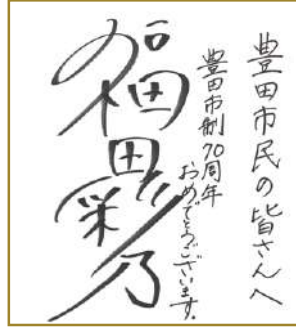 豊田市民の皆さんへ
豊田市制70周年
おめでとうございます。
福田彩乃